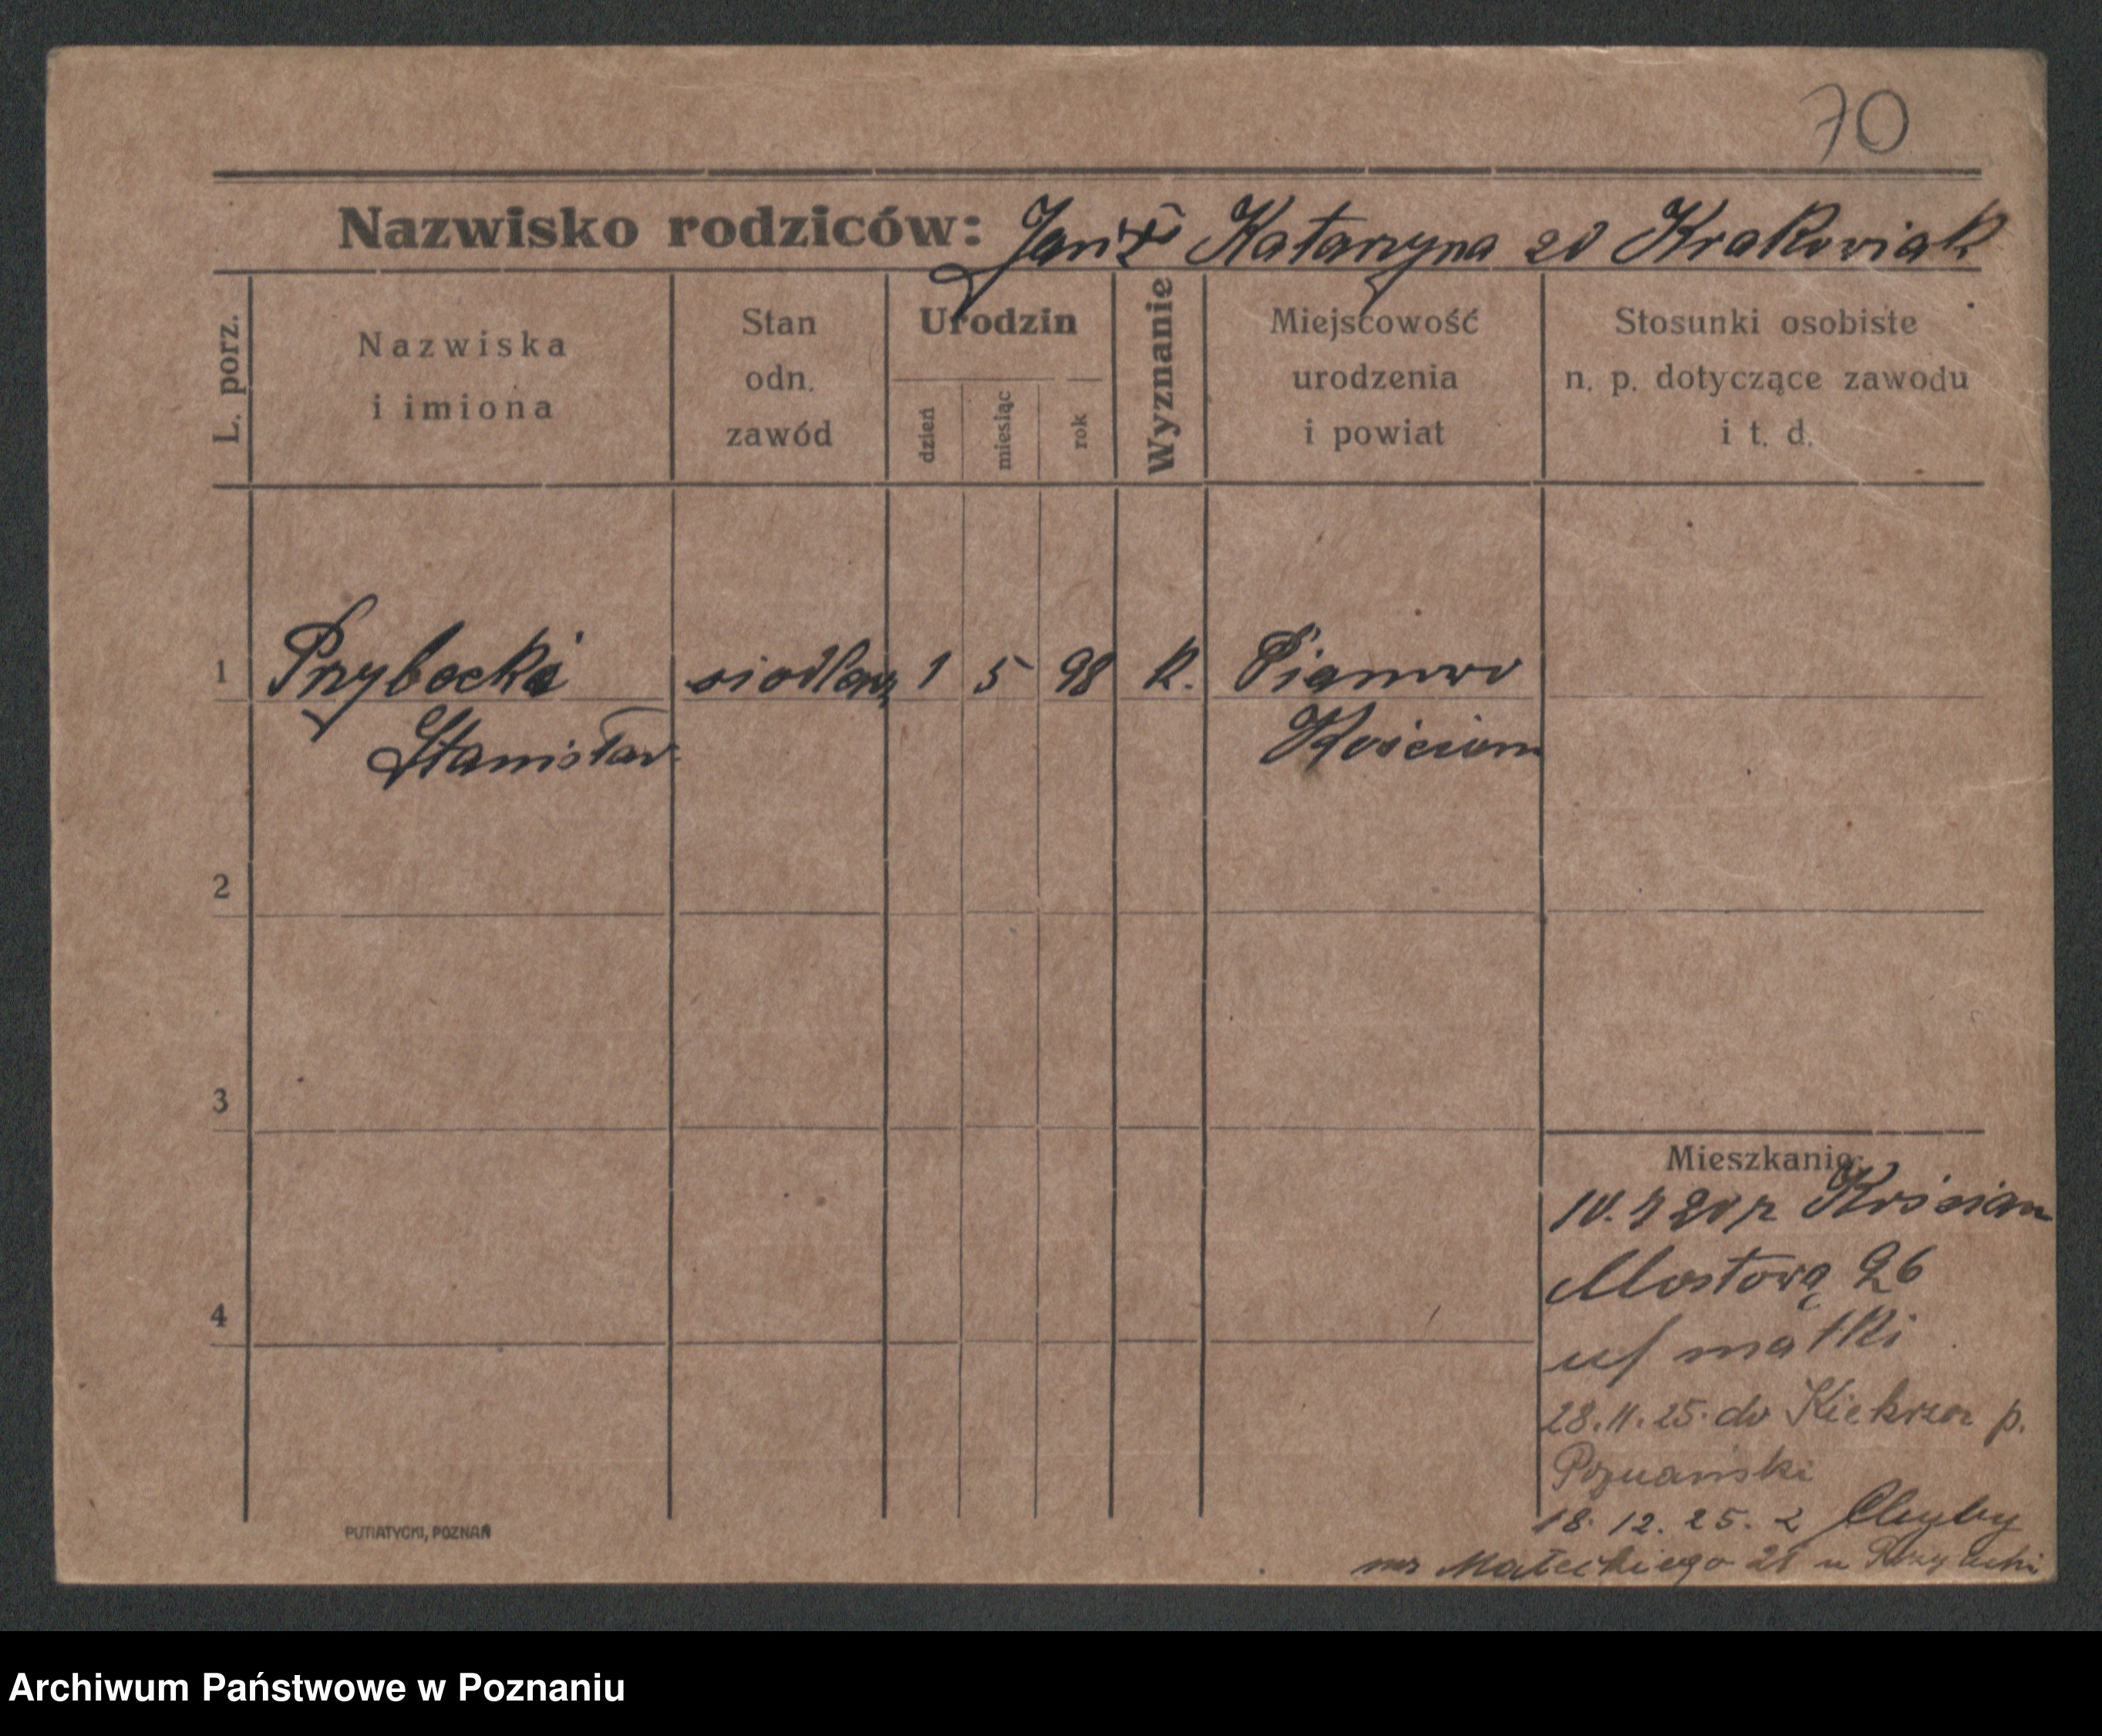 70
Nazwisko rodziców: Jan i Katarzyna zd Krakowiak
L. porz.
Nazwiska
i imiona
Stan
odn.
zawód
Urodzin
dzień
miesiąc
rok
Wyznanie
Miejscowość
urodzenia
i powiat
Stosunki osobiste
n. p. dotyczące zawodu
i t. d.
1 Przybecki siodlarz 1 5 98 k. Pianowo
Stanisław Kościan
2
3
4
Mieszkanie:
20 r Kościan
Mostowa 26
u/ matki
28.11.25. do Kiekrza p.
Poznański
18. 12. 25. z Chyby
Małeckiego 21 u
PUTIATYCKI, POZNAŃ
Archiwum Państwowe w Poznaniu